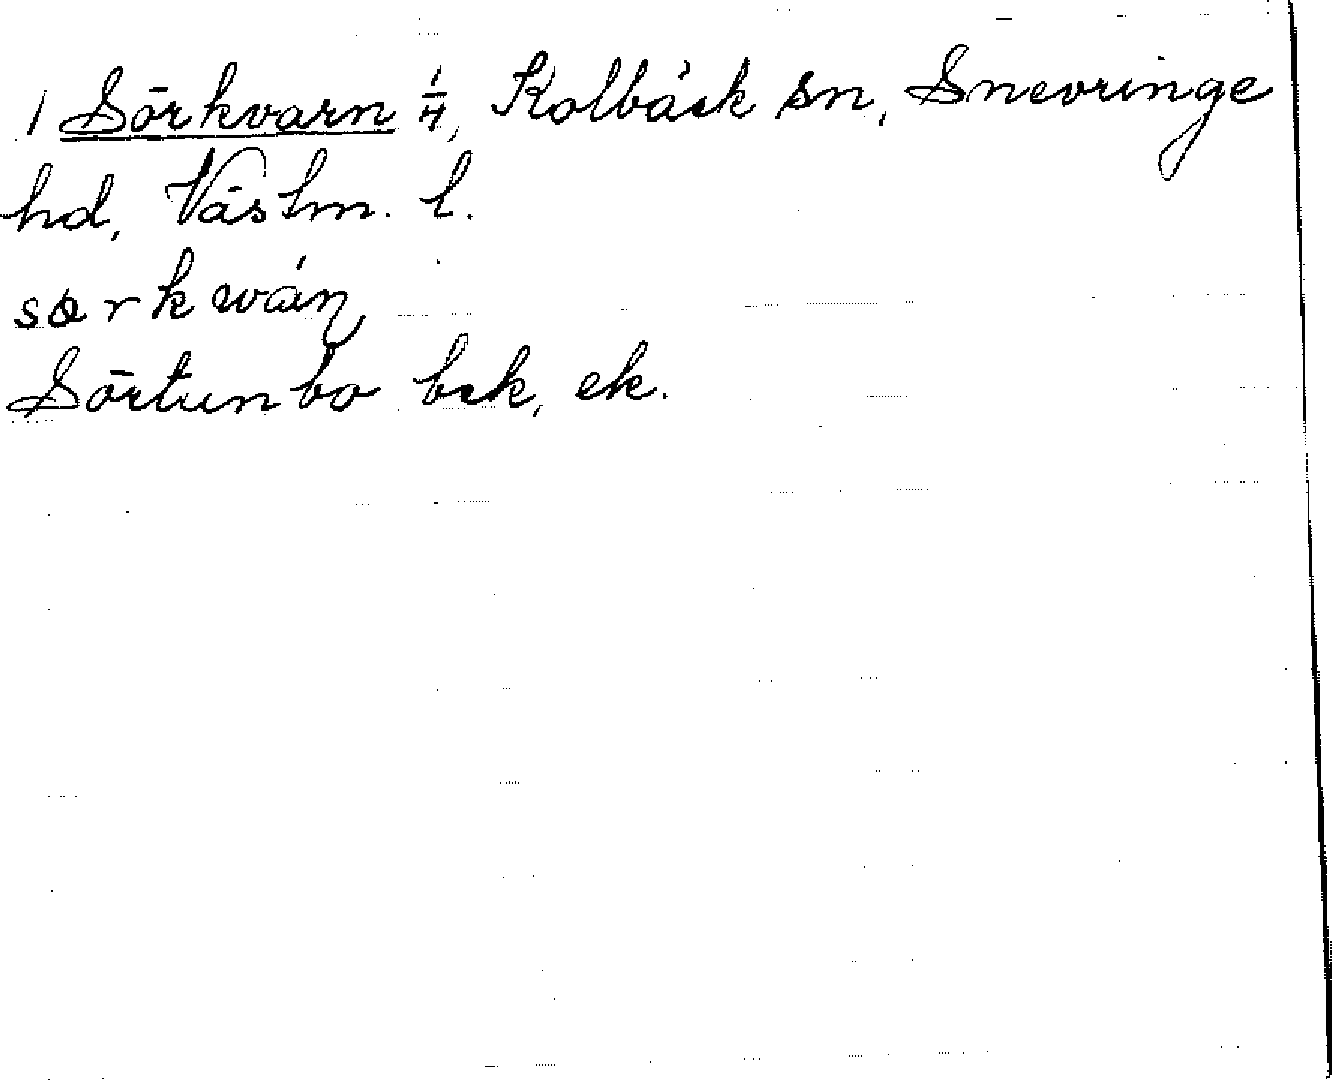 1 Sörkvarn 1/4, Kolbäck sn, Snevringe
hd, Västm. l.
særkwáɳ
Sörtunbo bck, ek.